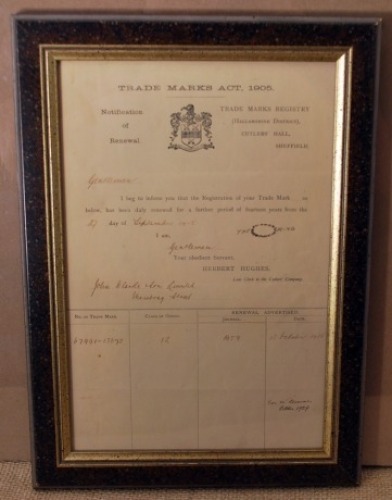 TRADE MARKS ACT, 1905.
Notification
of
Renewal.
TRADE MARKS REGISTRY
(HALLAMSHIRE DISTRICT),
CUTLERS' HALL,
SHEFFIELD.
Gentlemen
I beg to inform you that the Registration of your Trade Mark as
below, has been duly renewed for a further period of fourteen years from the
27 day of September
I am,
Gentlemen
Your obedient Servant,
HERBERT HUGHES,
Law Clerk to the Cutlers' Company.
John Clarke & Son Limited
Mowbray Street
No. of Trade Mark.
RENEWAL ADVERTISED
Journal.
Date.
12
October